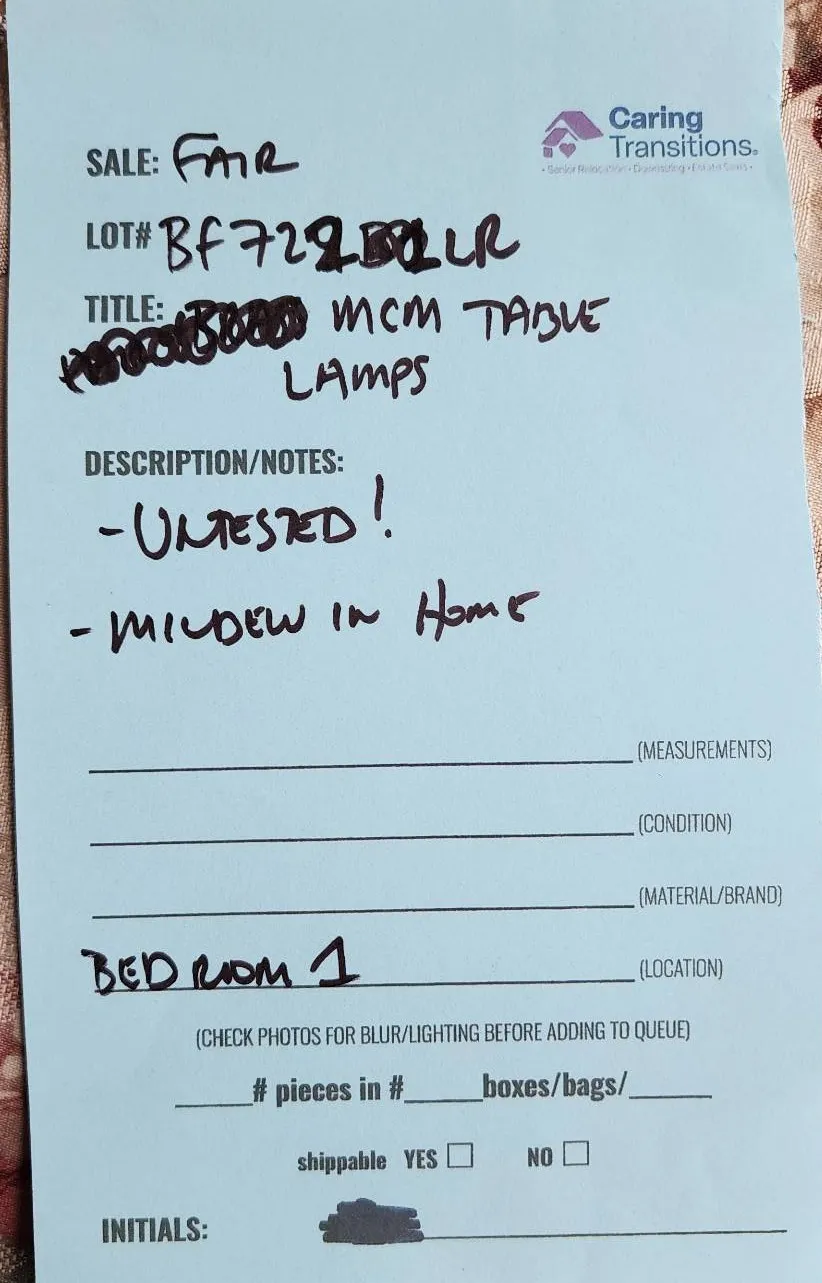 Caring
Transitions.
• Senior Relocation • Downsizing • Estate Sales •
SALE: FAIR
LOT# BF72 LR
TITLE: MCM TABLE
LAMPS
DESCRIPTION/NOTES:
- UNTESTED!
- MILDEW IN HOME
(MEASUREMENTS)
(CONDITION)
(MATERIAL/BRAND)
BEDROOM 1 (LOCATION)
(CHECK PHOTOS FOR BLUR/LIGHTING BEFORE ADDING TO QUEUE)
# pieces in # boxes/bags/
shippable YES NO
INITIALS: